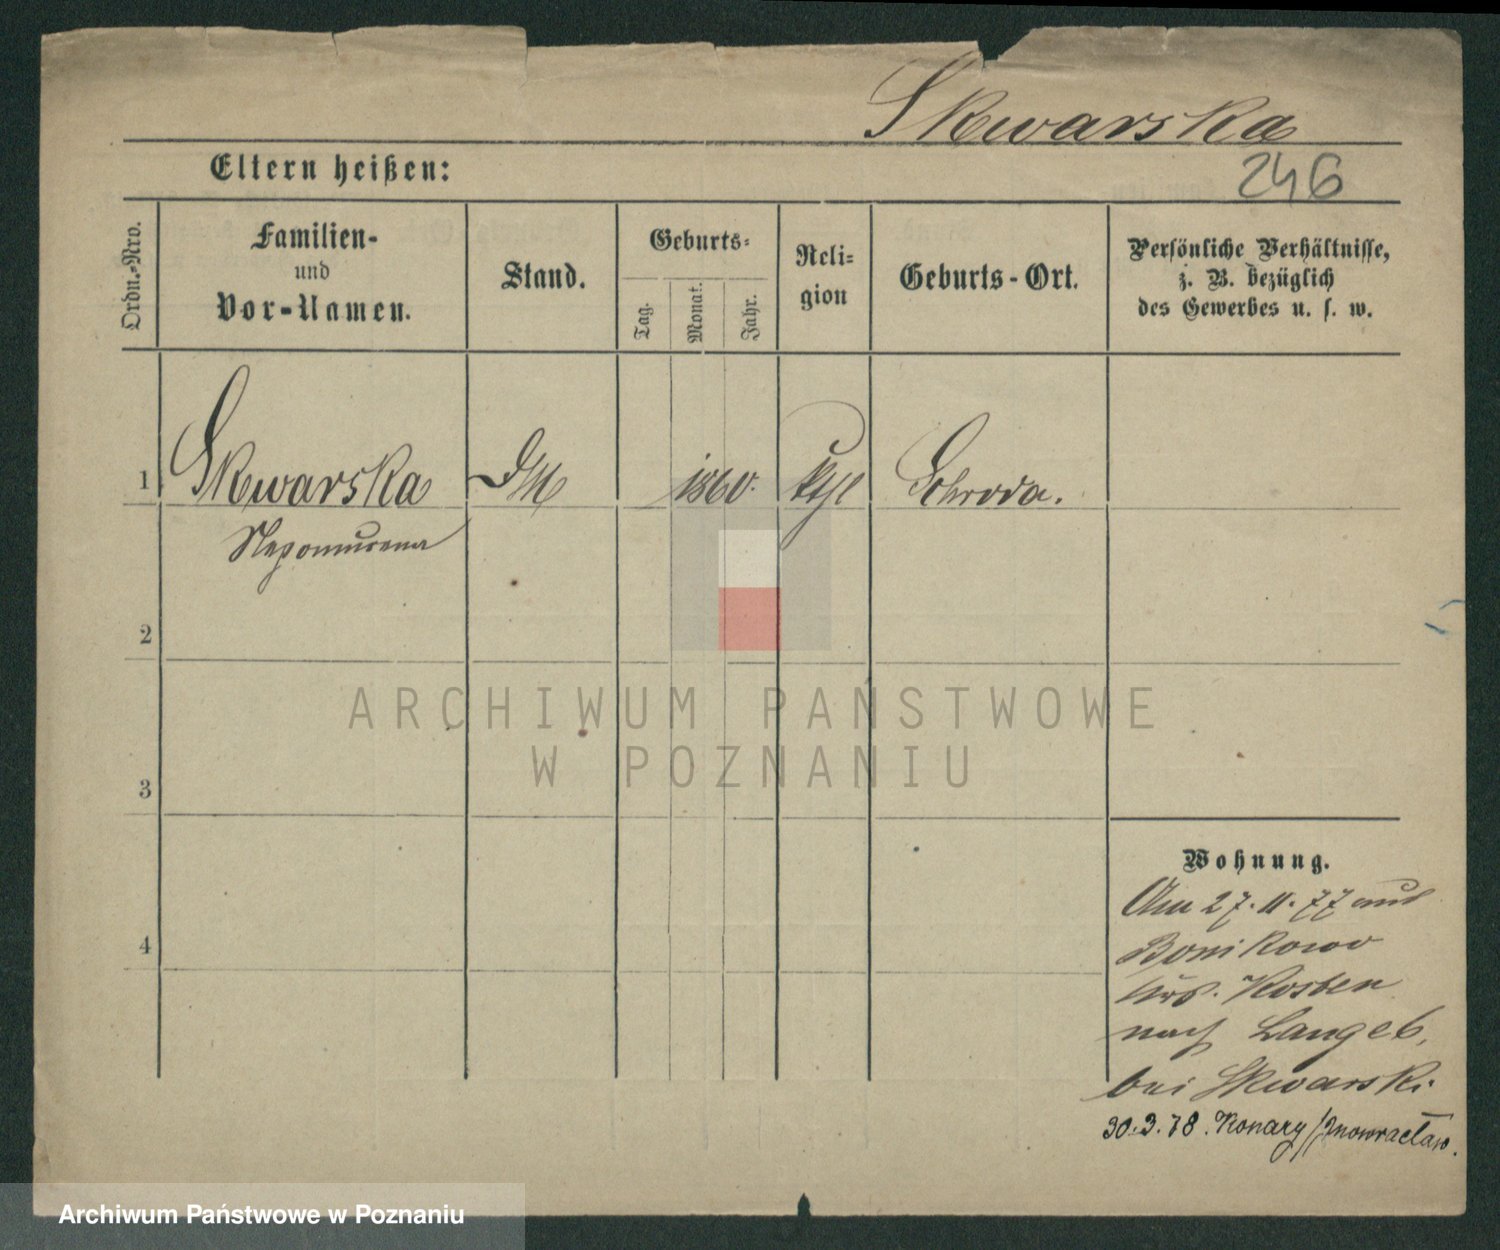 Skwarska
246
Eltern heißen:
Ordn.-Nro.
Familien-
und
Vor-Namen.
Stand.
Geburts-
Tag.
Monat.
Jahr.
Reli-
gion
Geburts-Ort.
Persönliche Verhältnisse,
z. B. bezüglich
des Gewerbes u. s. w.
1
Skwarska
DM
1860.
kth
Schroda.
Nepomucena
2
3
4
Wohnung.
Am 27.11.77 aus
Bonikowo
Krs. Kosten
nach Langeb,
bei Skwarski
30.3.78. Konary/Inowracław.
ARCHIWUM PAŃSTWOWE
W POZNANIU
Archiwum Państwowe w Poznaniu